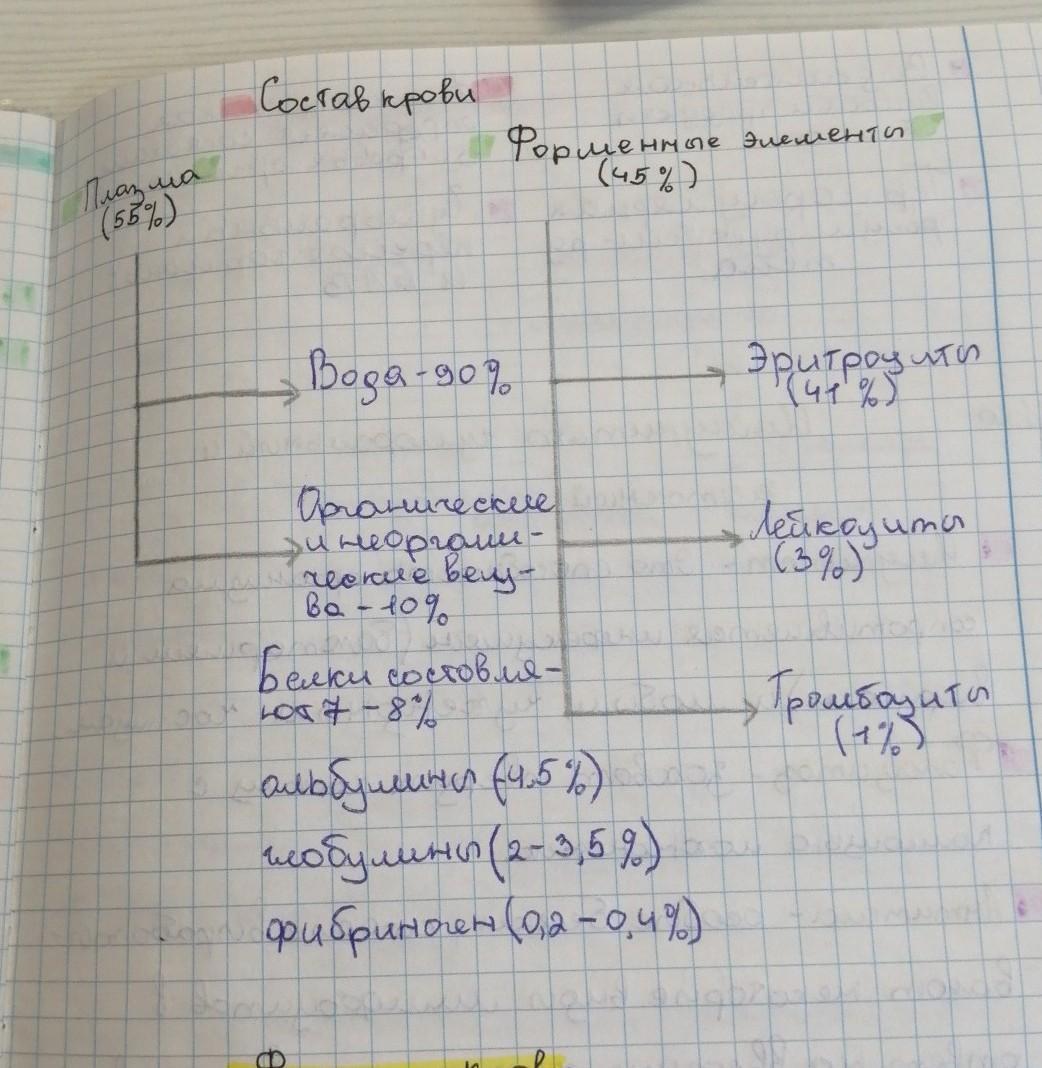 Состав крови
Форменные элементы
(45%)
Плазма
(55%)
Вода - 90%
Органические
и неоргани-
ческие вещ-
ва - 10%
Белки состовля-
ют 7 - 8%
альбумины (4,5%)
глобулины (2 - 3,5%)
фибриноген (0,2 - 0,4%)
Эритроциты
(41%)
Лейкоциты
(3%)
Тромбоциты
(1%)